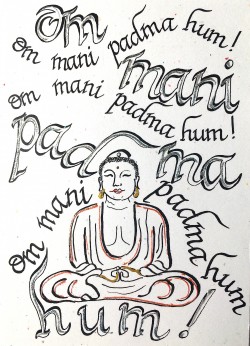 Om
om mani padma hum!
mani
om mani padma hum!
padma
om mani padma hum
hum!